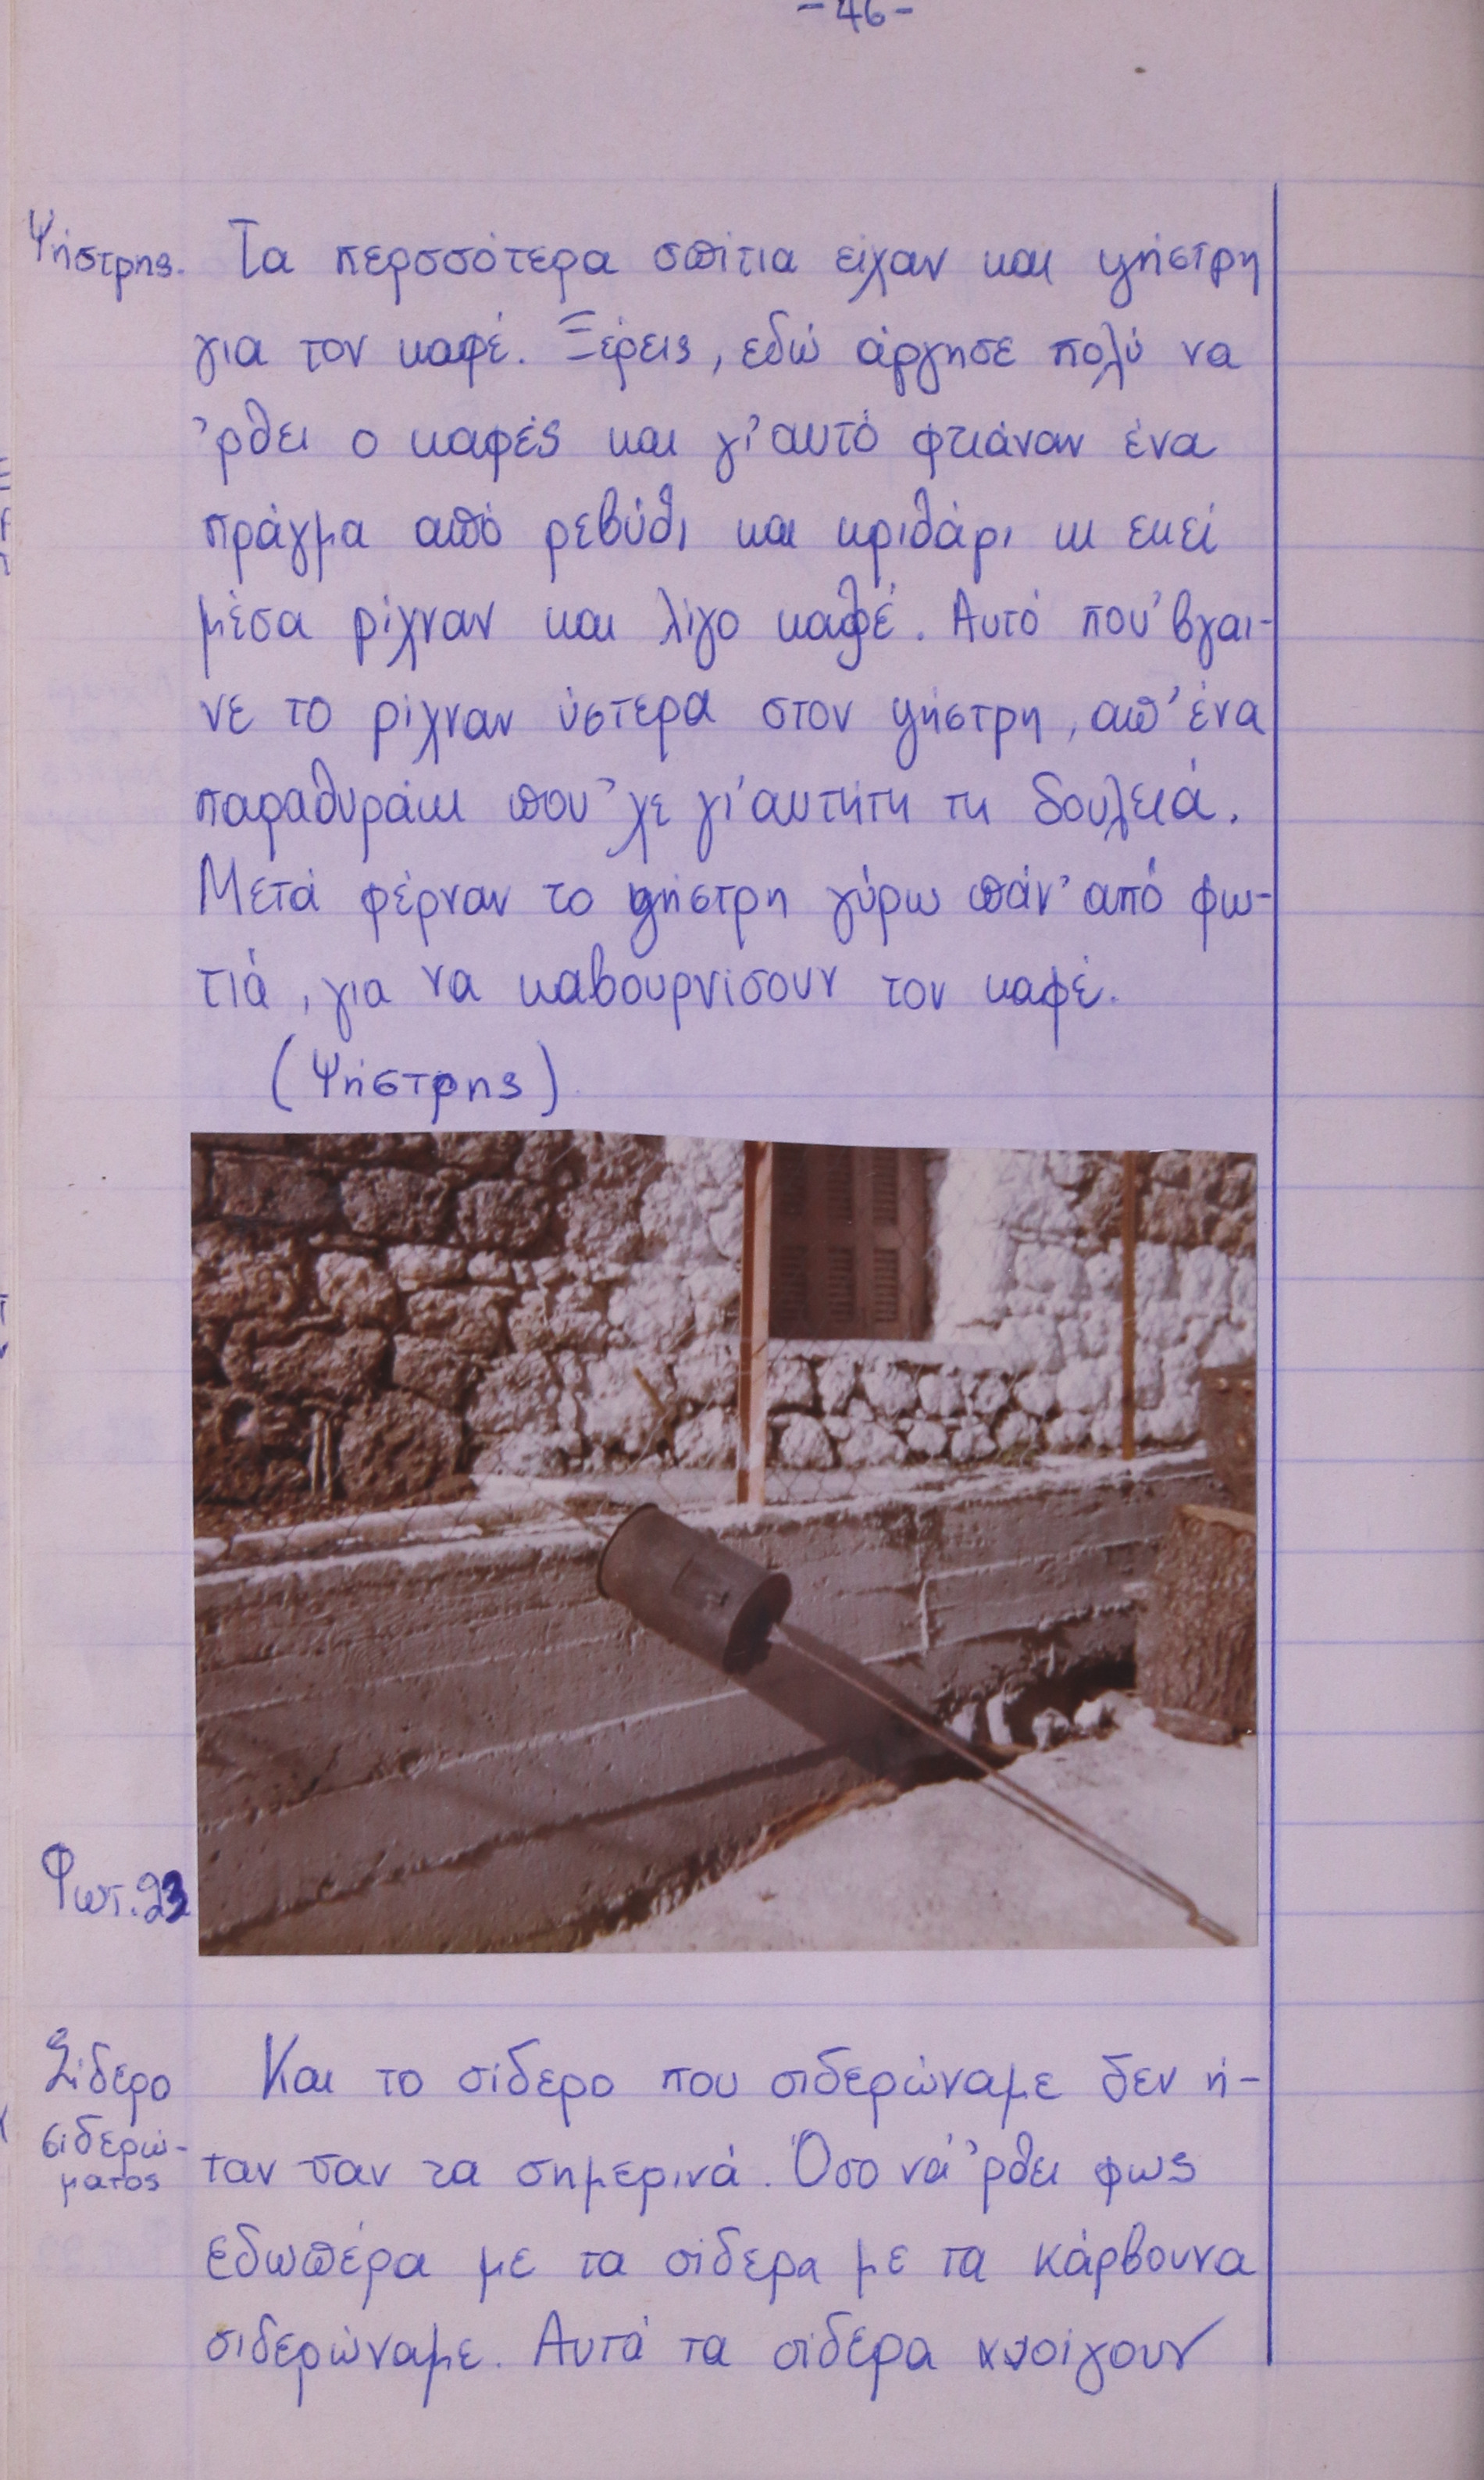 -46-
Ψήστρης. Τα περσσότερα σπίτια είχαν και ψήστρη
για τον καφέ. Ξέρεις, εδώ άργησε πολύ να
'ρθει ο καφές και γι'αυτό φτιάναν ένα
πράγμα από ρεβύθι και κριθάρι κι εκεί
μέσα ρίχναν και λίγο καφέ. Αυτό που'βγαι-
νε το ρίχναν ύστερα στον ψήστρη, απ'ένα
παραθυράκι που'χε γι'αυτήτη τη δουλειά.
Μετά φέρναν το ψήστρη γύρω πάν'από φω-
τιά, για να καβουρνίσουν τον καφέ.
(Ψήστρης)
Φωτ.23
Σίδερο Και το σίδερο που σιδερώναμε δεν ή-
σιδερώ- ταν σαν τα σημερινά. Όσο νά'ρθει φως
ματος
εδωπέρα με τα σίδερα με τα κάρβουνα
σιδερώναμε. Αυτά τα σίδερα ανοίγουν